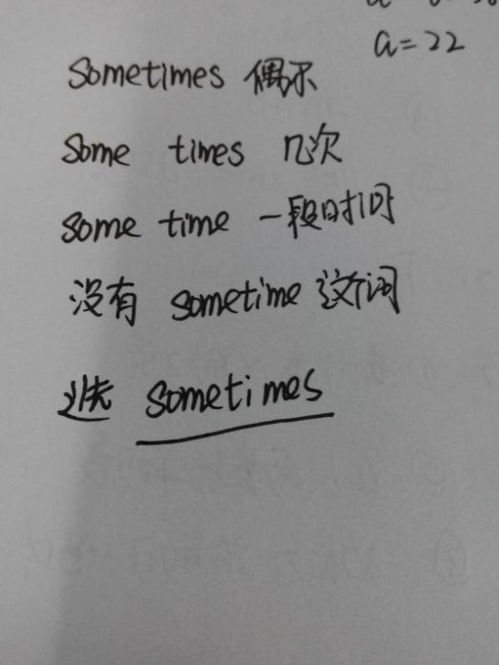 a=22
Sometimes 偶尔
Some times 几次
some time 一段时间
没有 sometime 这个词
选 sometimes